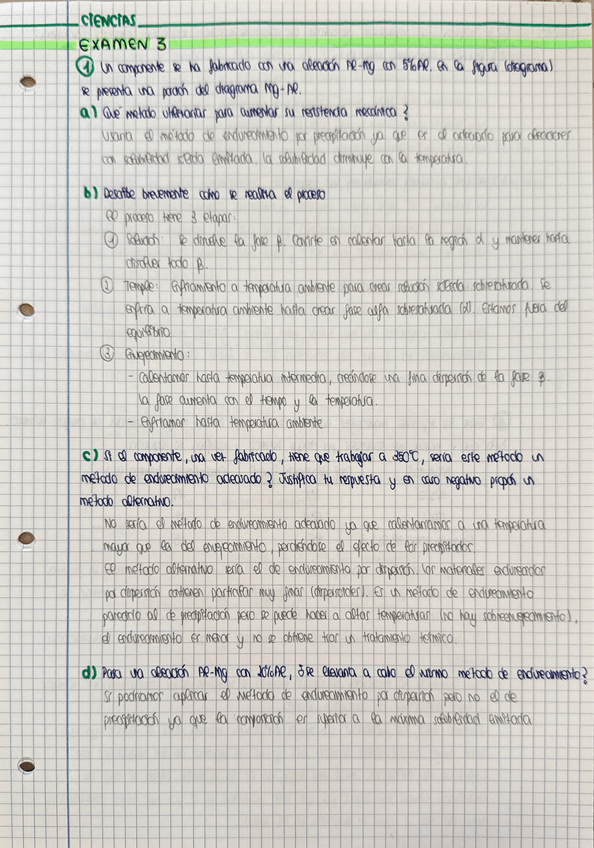 CIENCIAS
EXAMEN 3
① Un componente se ha fabricado con una aleación Al-Mg con 5% Al. En la figura (diagrama)
se presenta una porción del diagrama Mg-Al.
a) Qué metodo utilizarias para aumentar su resistencia mecánica?
Usaría el método de endurecimiento por precipitación ya que es el adecuado para aleaciones
con solubilidad sólida limitada. La solubilidad disminuye con la temperatura.
b) Describe brevemente como se realiza el proceso
El proceso tiene 3 etapas:
① Solución: Se disuelve la fase β. Consiste en calentar hasta la región α y mantener hasta
disolver todo β.
② Temple: Enfriamiento a temperatura ambiente para crear solución sólida sobresaturada. Se
enfria a temperatura ambiente hasta crear fase alfa sobresaturada (α). Estamos fuera del
equilibrio
③ Envejecimiento:
- Calentamos hasta temperatura intermedia, creándose una fina dispersión de la fase β.
La fase aumenta con el tiempo y la temperatura.
- Enfriamos hasta temperatura ambiente
c) Si el componente, una vez fabricado, tiene que trabajar a 350°C, sería este método un
método de endurecimiento adecuado? Justifica tu respuesta y en caso negativo propón un
método alternativo.
No sería el método de endurecimiento adecuado ya que calentaríamos a una temperatura
mayor que la del envejecimiento, perdiéndose el efecto de los precipitados
El método alternativo sería el de endurecimiento por dispersión. Los materiales endurecidos
por dispersión contienen partículas muy finas (dispersoides). Es un método de endurecimiento
parecido al de precipitación pero se puede hacer a altas temperaturas (no hay sobreenvejecimiento),
el endurecimiento es menor y no se obtiene tras un tratamiento térmico.
d) Para una aleación Al-Mg con Al, ¿se llevaría a cabo el mismo método de endurecimiento?
Si podríamos aplicar el método de endurecimiento por dispersión pero no el de
precipitación ya que la composición es superior a la máxima solubilidad limitada